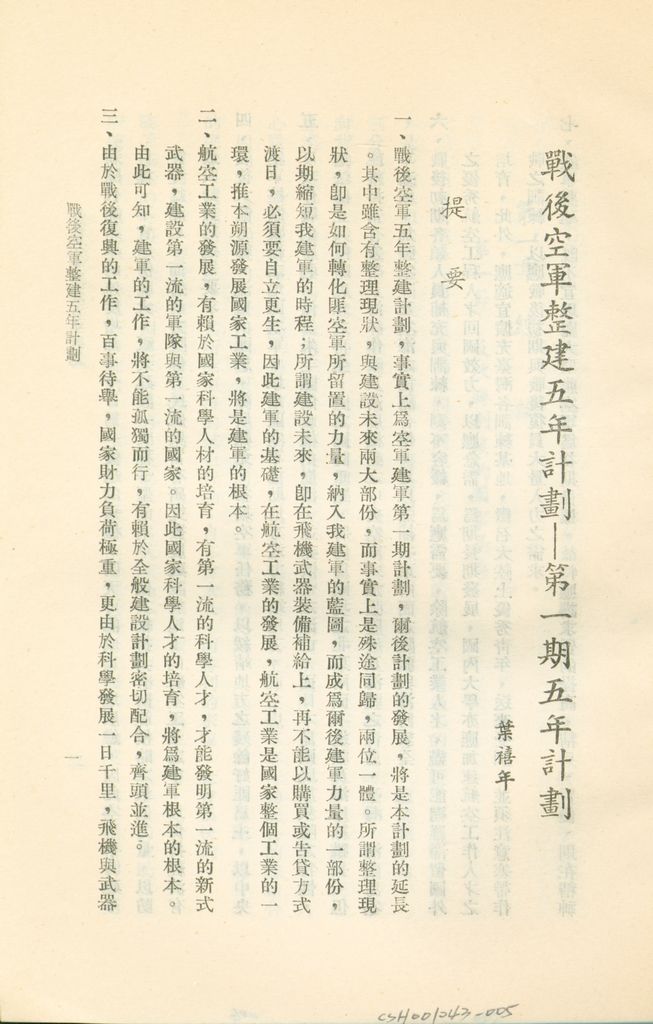 戰後空軍整建五年計劃—第一期五年計劃
葉禧年
提要
一、戰後空軍五年整建計劃，事實上爲空軍建軍第一期計劃，爾後計劃的發展，將是本計劃的延長
。其中雖含有整理現狀，與建設未來兩大部份，而事實上是殊途同歸，兩位一體。所謂整理現
狀，卽是如何轉化匪空軍所留置的力量，納入我建軍的藍圖，而成爲爾後建軍力量的一部份，
以期縮短我建軍的時程；所謂建設未來，卽在飛機武器裝備補給上，再不能以購買或告貸方式
渡日，必須要自立更生，因此建軍的基礎，在航空工業的發展，航空工業是國家整個工業的一
環，推本朔源發展國家工業，將是建軍的根本。
二、航空工業的發展，有賴於國家科學人材的培育，有第一流的科學人才，才能發明第一流的新式
武器，建設第一流的軍隊與第一流的國家。因此國家科學人才的培育，將爲建軍根本的根本。
由此可知，建軍的工作，將不能孤獨而行，有賴於全般建設計劃密切配合，齊頭並進。
三、由於戰後復興的工作，百事待舉，國家財力負荷極重，更由於科學發展一日千里，飛機與武器
戰後空軍整建五年計劃
一
CSH001043-005